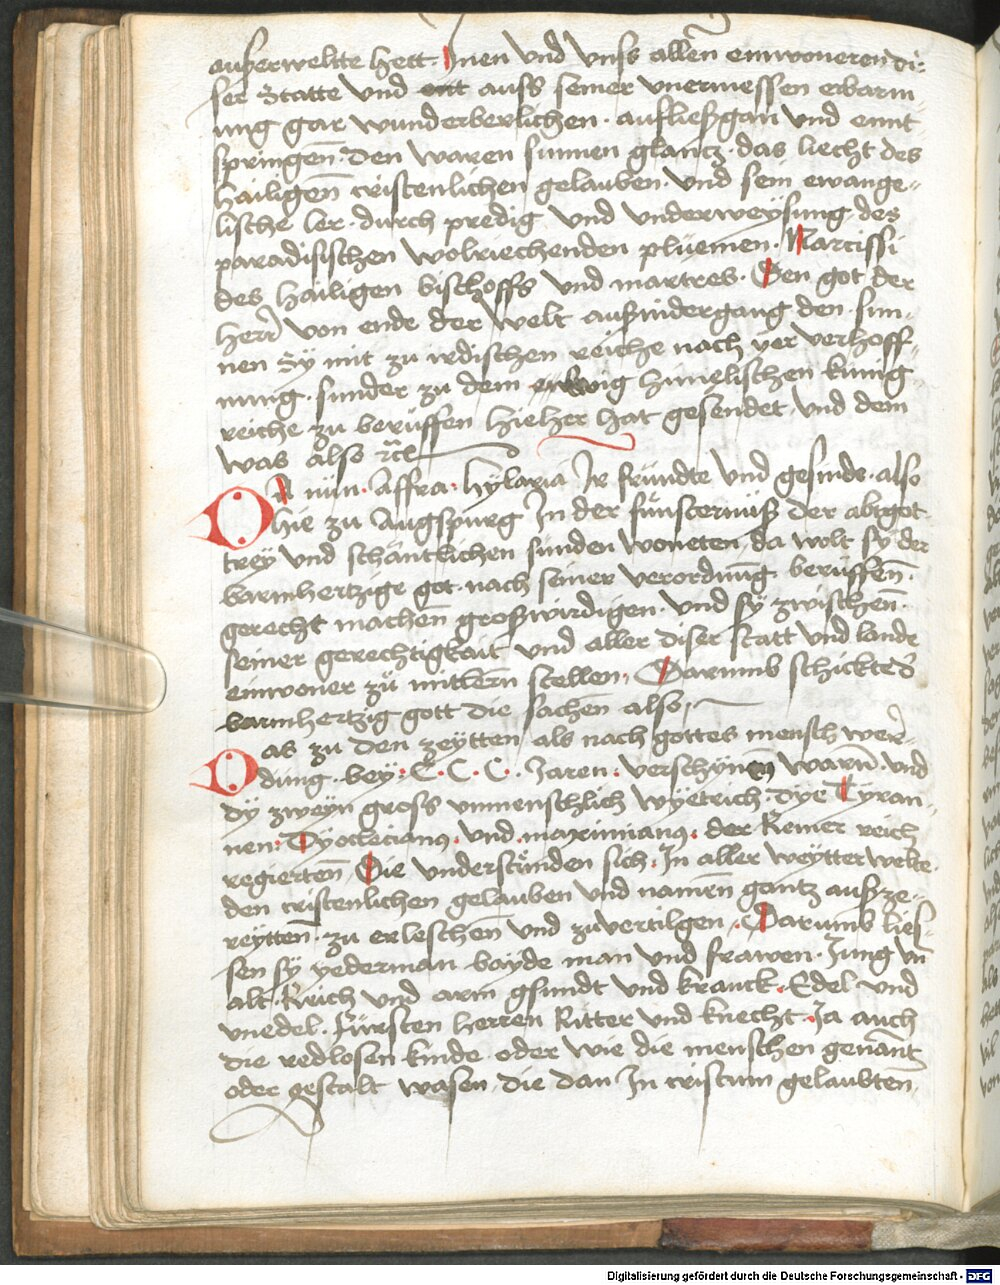 ausserweltte hett. Inen vnd vnss allen einwoneren di-
ser Statte vnd auss seiner vnermessen erbarm-
ung gar wunderberlichen. aufliessgan vnd ennt-
springen. den waren sunnen glantz. das liecht des
hailigen cristenlichen gelauben. vnd sein ewange-
lische ler. durch predig vnd vnderweysung des
paradisischen wolriechenden plüemen. Narcissi
des hailigen bischoffs vnd martres. Den got der
herr von ende der welt aufnidergang den sun-
nen Sy nit zu irdischen reiche nach yer verhoff-
nung. sunder zu dem ewig himelischen kunig-
reiche zu berüffen hieher hat gesendet vnd dem
was also
Da nün. Affra. Hylaria Ir fründte vnd gesinde. also
hie zu Augspurg In der finsternüss der abtgot-
trey vnd schäntlichen sünden woneten, da wolt sy der
barmhertzige got. nach seiner verordnung berüffen.
gerecht machen grosswirdigen. vnd sy zwischen
seiner gerechtigkait vnd aller diser statt vnd lande
einwoner zu mittern stellen, Darumb schickt es
barmhertzig gott die sachen also,
Das zu den zeytten als nach gottes mensch wer-
dung. bey. C. C. C. Jaren. verschynen warn. vnd
dy zweyn gross vnmenschlich wyetrich. dye Tyran-
nen. Dyoclecianus. vnd. maximianus. der Remer reich
regierten. Die vnderstünden sich. In aller weytter welte.
den cristenlichen gelauben vnd namen gantz ausze-
reytten. zu erleschen vnd zuvertilgen. Darumb lies-
sen sy yederman bayde man vnd frawen. Jung vn
alt. Reich vnd arm gsundt vnd kranck. Edel vnd
vnedel. Fürsten herren Ritter vnd knecht. Ja auch
die redlosen kinde oder wie die menschen genant
oder gestalt wasen. die dan In cristum gelaubten,
Digitalisierung gefördert durch die Deutsche Forschungsgemeinschaft - DFG